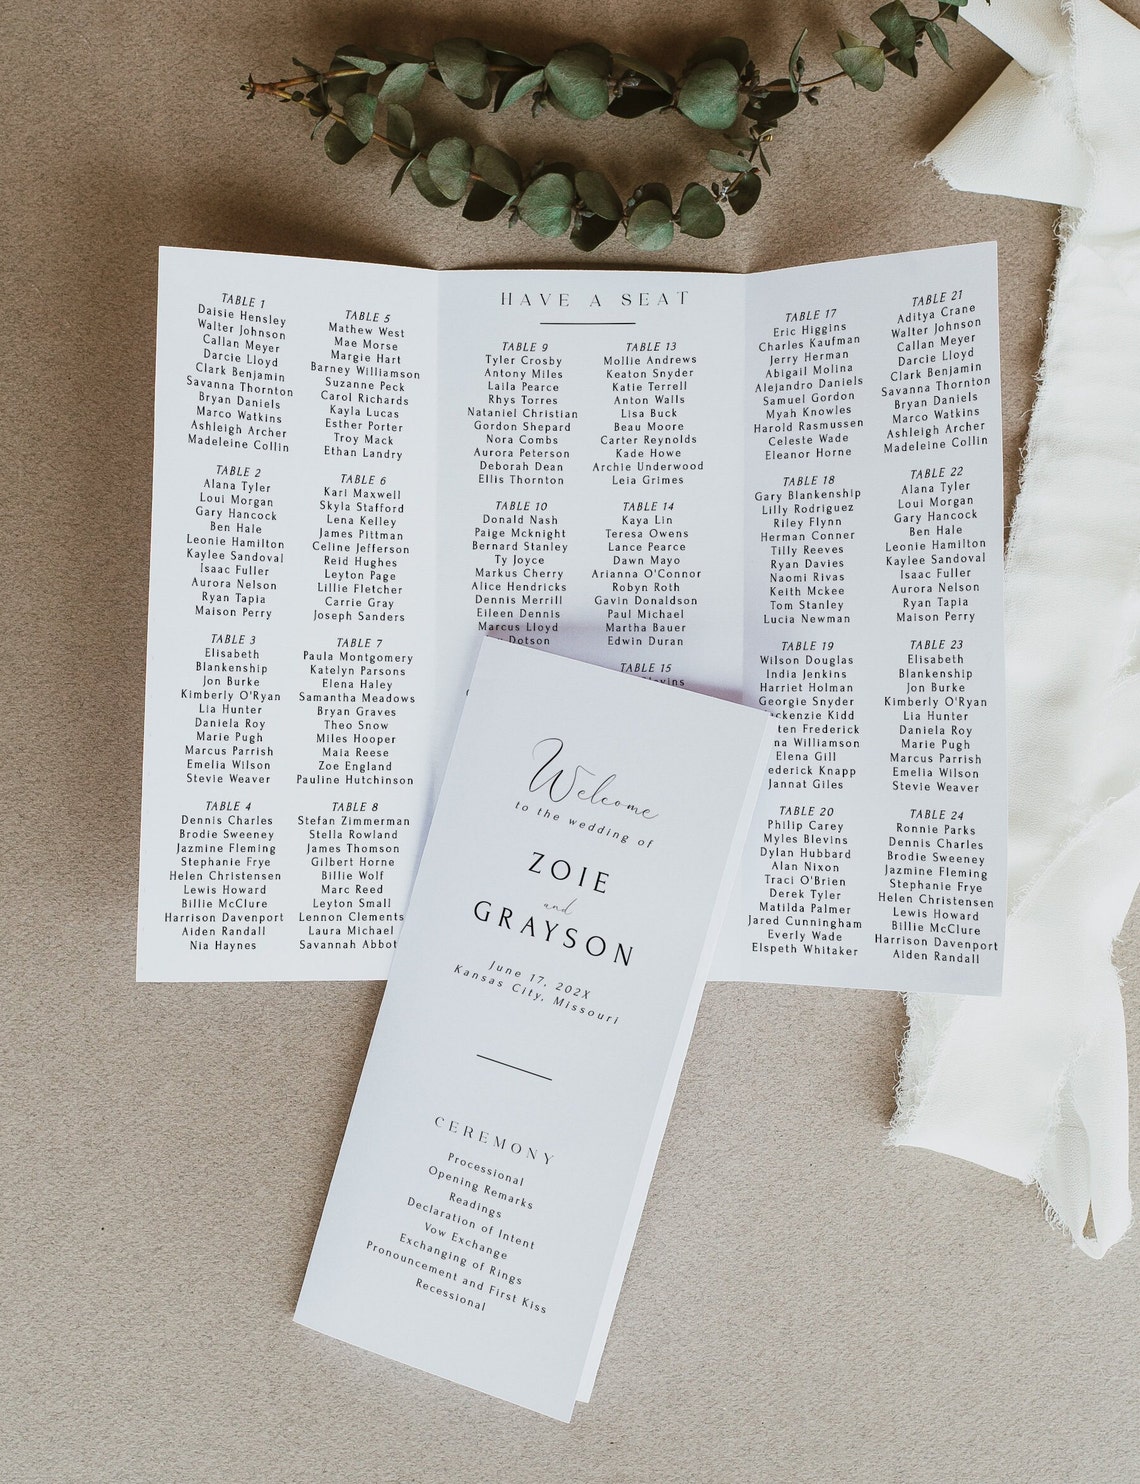 HAVE A SEAT
TABLE 1
Daisie Hensley
Walter Johnson
Callan Meyer
Darcie Lloyd
Clark Benjamin
Savanna Thornton
Bryan Daniels
Marco Watkins
Ashleigh Archer
Madeleine Collin
TABLE 2
Alana Tyler
Loui Morgan
Gary Hancock
Ben Hale
Leonie Hamilton
Kaylee Sandoval
Isaac Fuller
Aurora Nelson
Ryan Tapia
Maison Perry
TABLE 3
Elisabeth
Blankenship
Jon Burke
Kimberly O'Ryan
Lia Hunter
Daniela Roy
Marie Pugh
Marcus Parrish
Emelia Wilson
Stevie Weaver
TABLE 4
Dennis Charles
Brodie Sweeney
Jazmine Fleming
Stephanie Frye
Helen Christensen
Lewis Howard
Billie McClure
Harrison Davenport
Aiden Randall
Nia Haynes
TABLE 5
Mathew West
Mae Morse
Margie Hart
Barney Williamson
Suzanne Peck
Carol Richards
Kayla Lucas
Esther Porter
Troy Mack
Ethan Landry
TABLE 6
Kari Maxwell
Skyla Stafford
Lena Kelley
James Pittman
Celine Jefferson
Reid Hughes
Leyton Page
Lillie Fletcher
Carrie Gray
Joseph Sanders
TABLE 7
Paula Montgomery
Katelyn Parsons
Elena Haley
Samantha Meadows
Bryan Graves
Theo Snow
Miles Hooper
Maia Reese
Zoe England
Pauline Hutchinson
TABLE 8
Stefan Zimmerman
Stella Rowland
James Thomson
Gilbert Horne
Billie Wolf
Marc Reed
Leyton Small
Lennon Clements
Laura Michael
Savannah Abbot
TABLE 9
Tyler Crosby
Antony Miles
Laila Pearce
Rhys Torres
Nataniel Christian
Gordon Shepard
Nora Combs
Aurora Peterson
Deborah Dean
Ellis Thornton
TABLE 10
Donald Nash
Paige Mcknight
Bernard Stanley
Ty Joyce
Markus Cherry
Alice Hendricks
Dennis Merrill
Eileen Dennis
Marcus Lloyd
Dotson
TABLE 13
Mollie Andrews
Keaton Snyder
Katie Terrell
Anton Walls
Lisa Buck
Beau Moore
Carter Reynolds
Kade Howe
Archie Underwood
Leia Grimes
TABLE 14
Kaya Lin
Teresa Owens
Lance Pearce
Dawn Mayo
Arianna O'Connor
Robyn Roth
Gavin Donaldson
Paul Michael
Martha Bauer
Edwin Duran
TABLE 15
TABLE 17
Eric Higgins
Charles Kaufman
Jerry Herman
Abigail Molina
Alejandro Daniels
Samuel Gordon
Myah Knowles
Harold Rasmussen
Celeste Wade
Eleanor Horne
TABLE 18
Gary Blankenship
Lilly Rodriguez
Riley Flynn
Herman Conner
Tilly Reeves
Ryan Davies
Naomi Rivas
Keith Mckee
Tom Stanley
Lucia Newman
TABLE 19
Wilson Douglas
India Jenkins
Harriet Holman
Georgie Snyder
Kidd
Frederick
Williamson
Elena Gill
Knapp
Jannat Giles
TABLE 20
Philip Carey
Myles Blevins
Dylan Hubbard
Alan Nixon
Traci O'Brien
Derek Tyler
Matilda Palmer
Jared Cunningham
Everly Wade
Elspeth Whitaker
TABLE 21
Aditya Crane
Walter Johnson
Callan Meyer
Darcie Lloyd
Clark Benjamin
Savanna Thornton
Bryan Daniels
Marco Watkins
Ashleigh Archer
Madeleine Collin
TABLE 22
Alana Tyler
Loui Morgan
Gary Hancock
Ben Hale
Leonie Hamilton
Kaylee Sandoval
Isaac Fuller
Aurora Nelson
Ryan Tapia
Maison Perry
TABLE 23
Elisabeth
Blankenship
Jon Burke
Kimberly O'Ryan
Lia Hunter
Daniela Roy
Marie Pugh
Marcus Parrish
Emelia Wilson
Stevie Weaver
TABLE 24
Ronnie Parks
Dennis Charles
Brodie Sweeney
Jazmine Fleming
Stephanie Frye
Helen Christensen
Lewis Howard
Billie McClure
Harrison Davenport
Aiden Randall
Welcome
to the wedding of
ZOIE
and
GRAYSON
June 17, 202X
Kansas City, Missouri
CEREMONY
Processional
Opening Remarks
Readings
Declaration of Intent
Vow Exchange
Exchanging of Rings
Pronouncement and First Kiss
Recessional